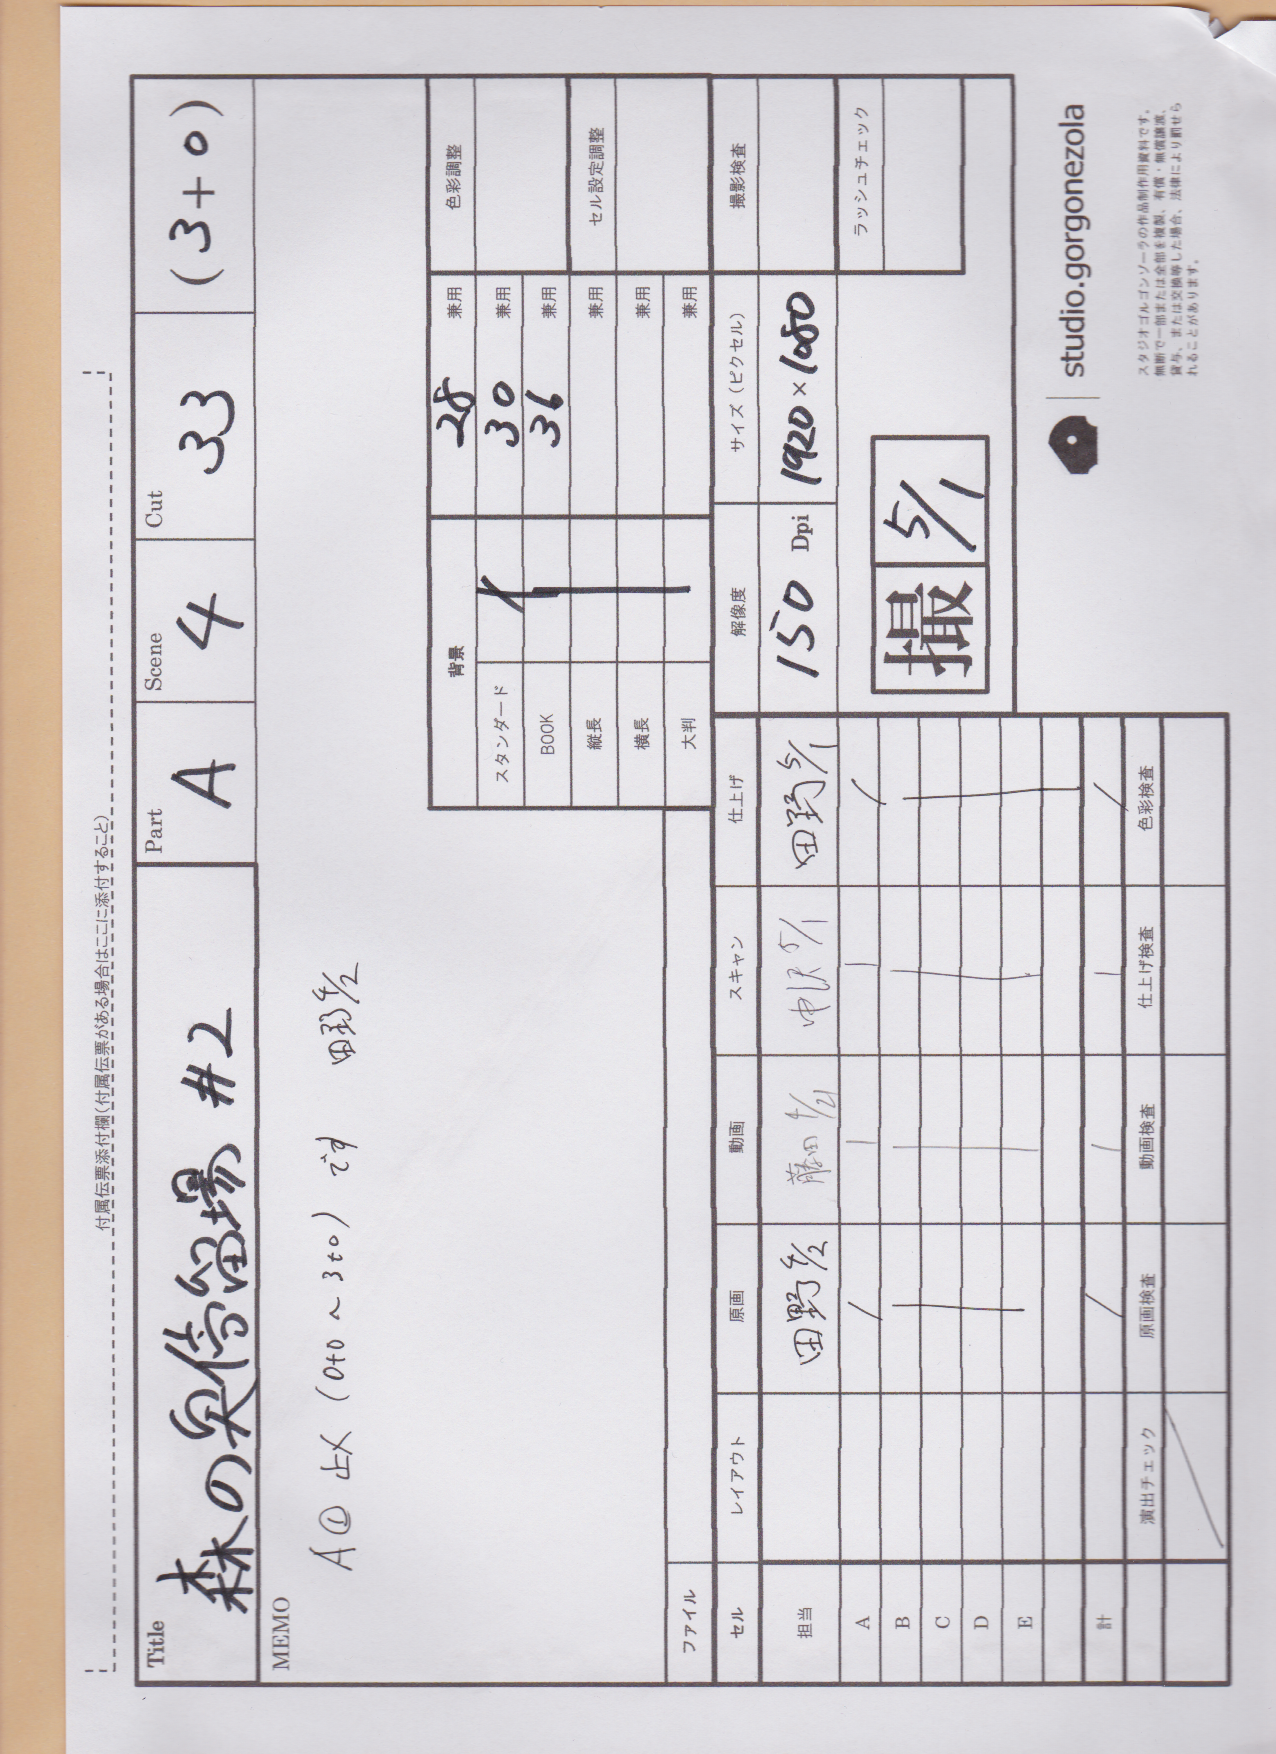 付属伝票添付欄(付属伝票がある場合はここに添付すること)
Title
森の臭倍留場 #2
Part
A
Scene
4
Cut
33
(3+0)
MEMO
A① 止メ (0+0 〜 3+0) です 田野 4/2
背景
スタンダード
BOOK
縦長
横長
大判
28 兼用
30 兼用
36 兼用
兼用
兼用
兼用
色彩調整
セル設定調整
解像度
150 Dpi
サイズ(ピクセル)
1920×1080
撮影検査
ラッシュチェック
撮 5/1
ファイル
セル レイアウト 原画 動画 スキャン 仕上げ
担当 田野 4/2 藤田 4/21 5/1 田野 5/1
A 1 1 1 1
B
C
D
E
計 1 1 1 1
演出チェック 原画検査 動画検査 仕上げ検査 色彩検査
studio.gorgonezola
スタジオゴルゴンゾーラの作品制作用資料です。
無断で一部または全部を複製、有償・無償譲渡、
貸与、または交換等した場合、法律により罰せら
れることがあります。